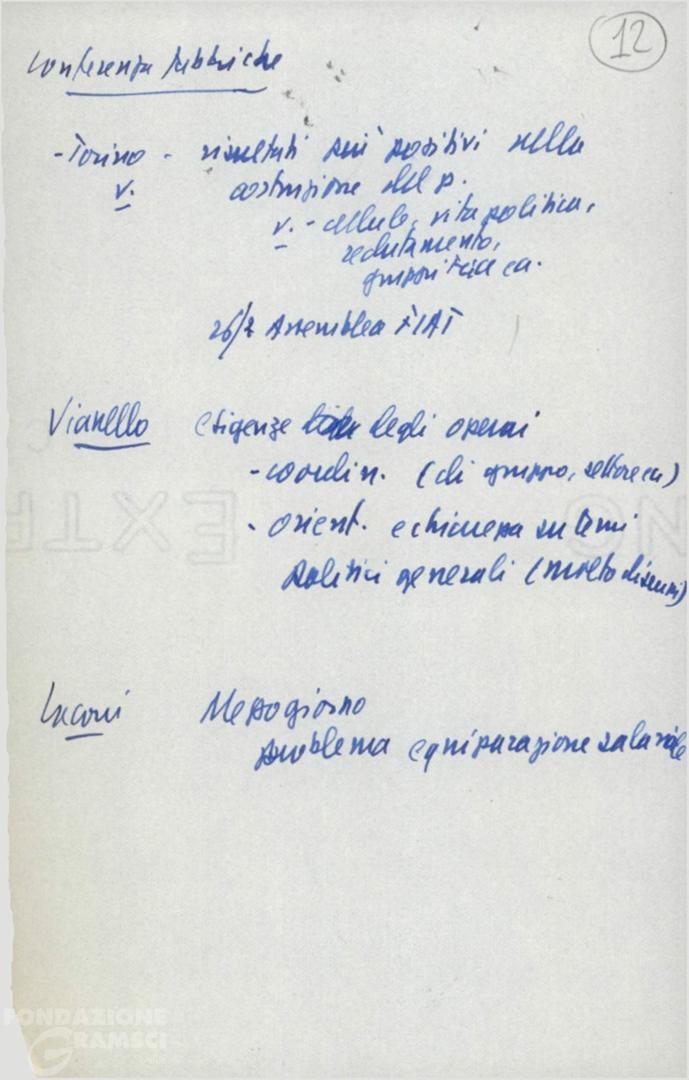 12
Conferenza fabbriche
- Torino - risultati più positivi nella
v. costruzione del p.
v. - cellule, vita politica,
reclutamento,
gruppi
26/2 Assemblea FIAT
Vianello esigenze degli operai
- coordin. (di gruppo, settore ecc)
- orient. e chiarezza su temi
politici generali (molto discussi)
Laconi Mezzogiorno
problema equiparazione salariale
EXTR
FONDAZIONE
GRAMSCI